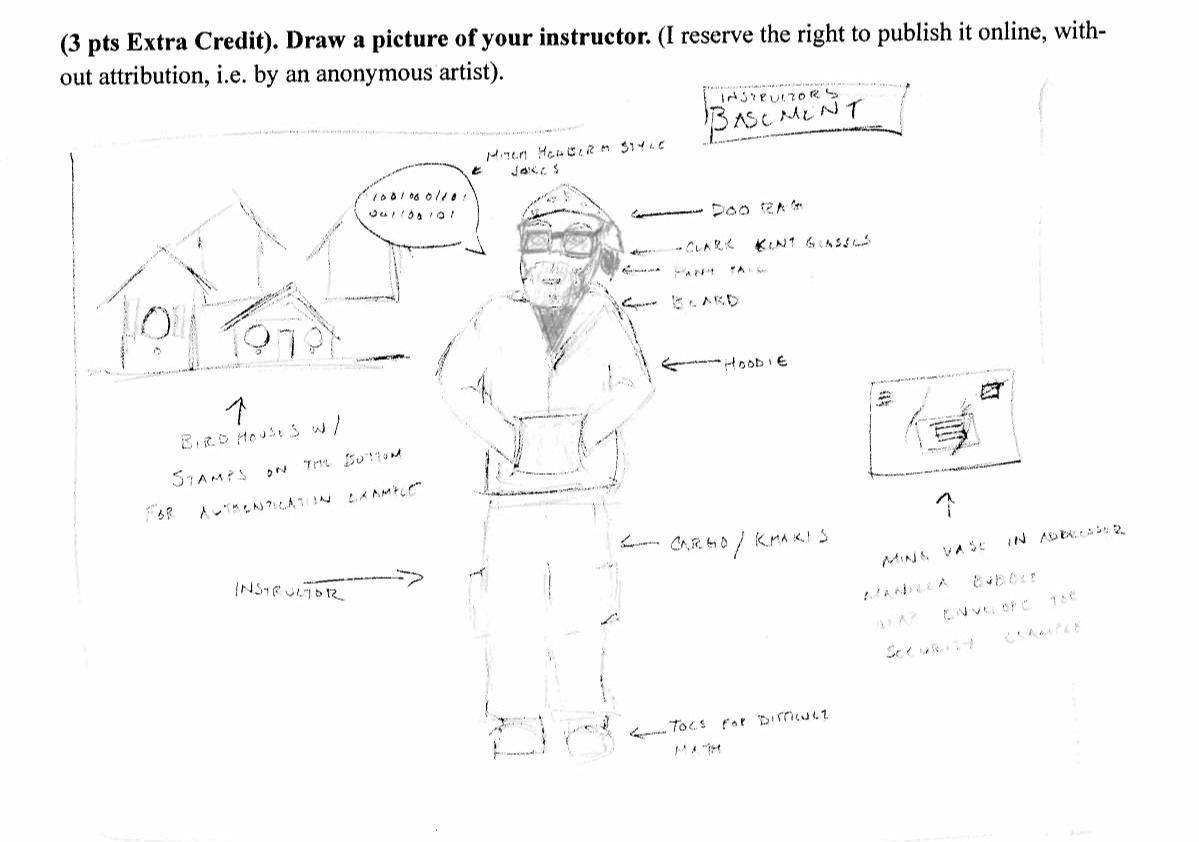 (3 pts Extra Credit). Draw a picture of your instructor. (I reserve the right to publish it online, with-
out attribution, i.e. by an anonymous artist).
INSTRUCTORS
BASEMENT
MITCH HEDBERG STYLE
JOKES
DOO RAG
CLARK KENT GLASSES
PONY TAIL
BEARD
HOODIE
BIRD HOUSES W/
STAMPS ON THE BOTTOM
FOR AUTHENTICATION EXAMPLE
INSTRUCTOR
CARGO / KHAKIS
MING VASE IN ADDRESSED
MANILLA BUBBLE
WRAP ENVELOPE FOR
SECURITY EXAMPLE
TOES FOR DIFFICULT
MATH